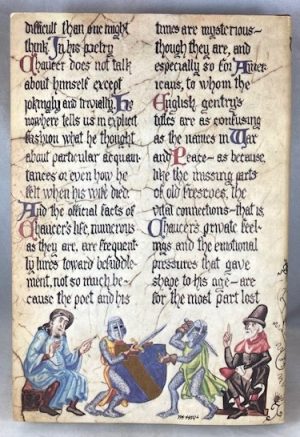 difficult than one might
think. In his poetry
Chaucer does not talk
about himself except
jokingly and trivially. He
nowhere tells us in explicit
fashion what he thought
about particular acquain-
tances or even how he
felt when his wife died.
And the official facts of
Chaucer's life, numerous
as they are, are frequent-
ly lures toward befuddle-
ment, not so much be-
cause the poet and his
times are mysterious–
though they are, and
especially so for Amer-
icans, to whom the
English gentry's
titles are as confusing
as the names in War
and Peace– as because,
like the missing parts
of old frescoes, the
vital connections–that is,
Chaucer's private feel-
ings and the emotional
pressures that gave
shape to his age–are
for the most part lost